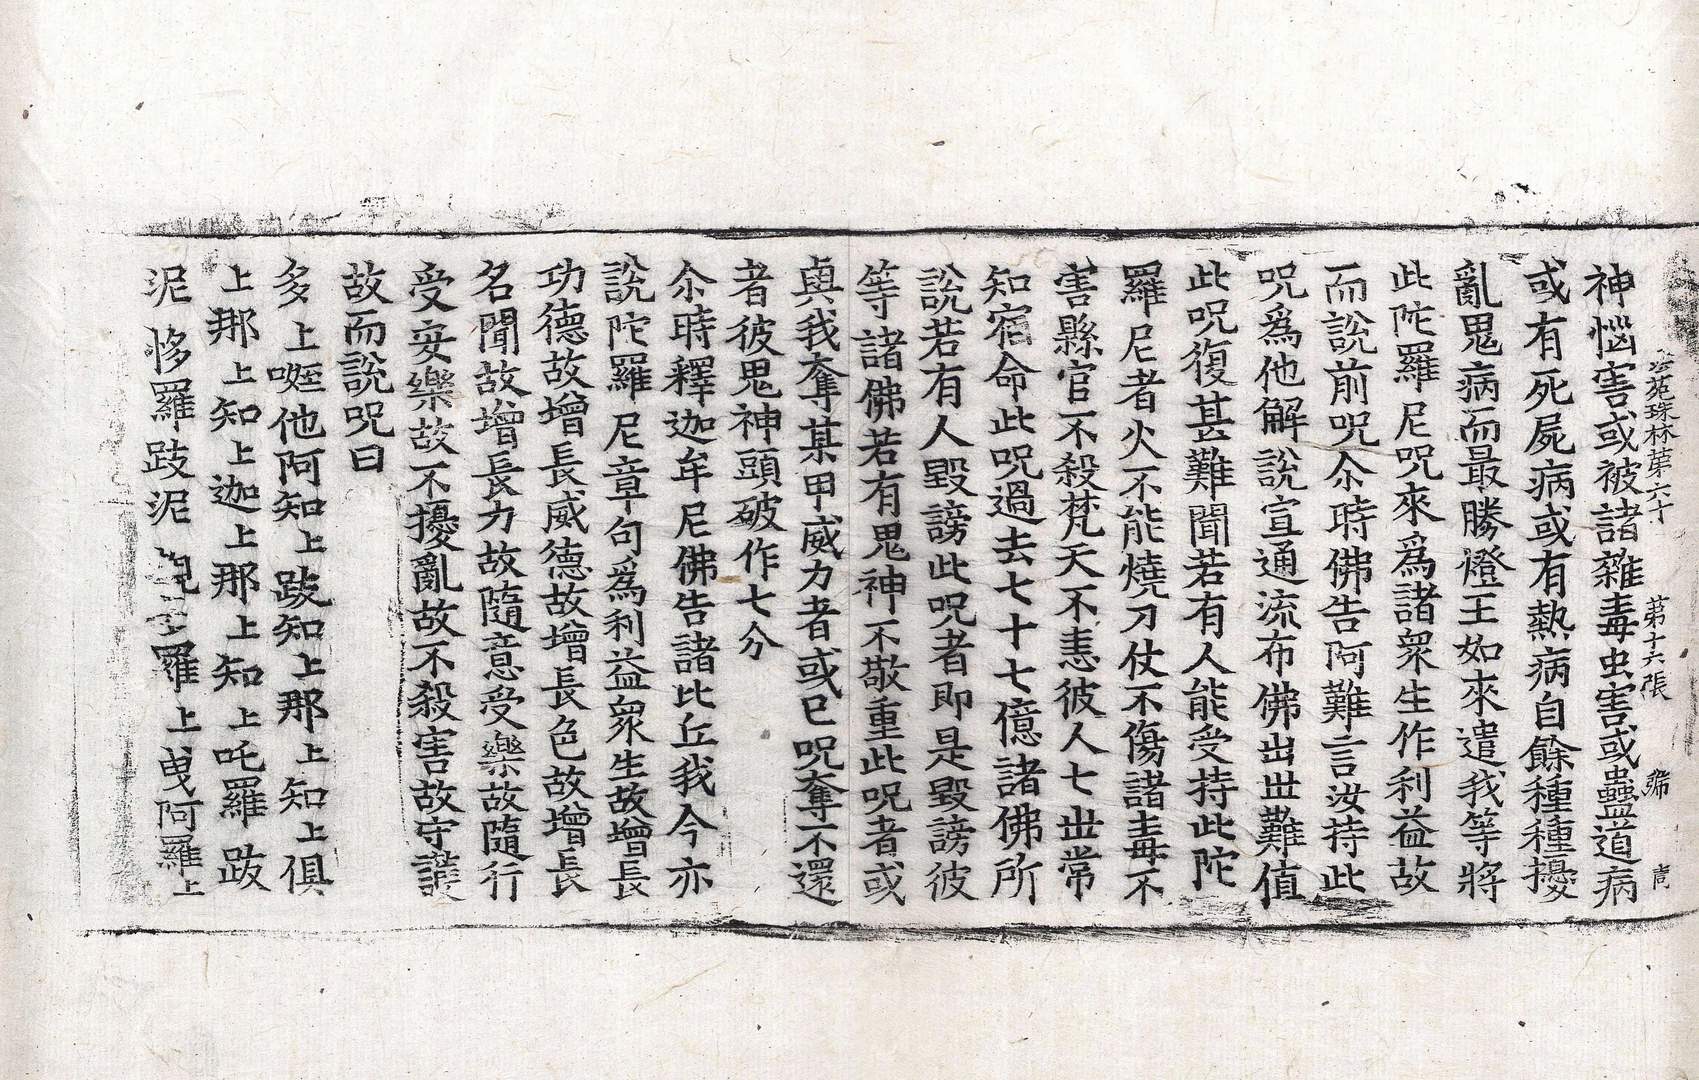 法苑珠林第六十 第十六張 㱔
神惱害或被諸雜毒虫害或蠱道病
或有死屍病或有熱病自餘種種擾
亂鬼病而最勝燈王如來遣我等將
此陀羅尼呪來爲諸衆生作利益故
而說前呪尒時佛告阿難言汝持此
呪爲他解說宣通流布佛出世難值
此呪復甚難聞若有人能受持此陀
羅尼者火不能燒刀仗不傷諸毒不
害縣官不殺梵天不恚彼人七世常
知宿命此呪過去七十七億諸佛所
說若有人毀謗此呪者即是毀謗彼
等諸佛若有鬼神不敬重此呪者或
與我奪某甲威力者或已呪奪不還
者彼鬼神頭破作七分
尒時釋迦牟尼佛告諸比丘我今亦
說陀羅尼章句爲利益衆生故增長
功德故增長威德故增長色故增長
名聞故增長力故隨意受樂故隨行
受安樂故不擾亂故不殺害故守護
故而說呪曰
多上咥他阿知上跋知上那上知上俱
上那上知上迦上那上知上吒羅跋
泥 羅跋泥 羅上曳阿羅上